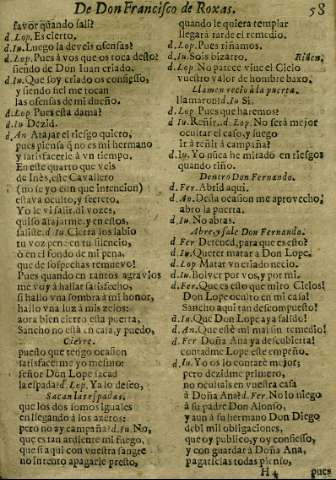 De Don Francisco de Roxas. 58
fauor quando salis?
d. Lop. Es cierto.
d. Iu. Luego la deveis ofensas?
d. Lop. Pues à vos que os toca desto?
siendo de Don Iuan criado.
d. Iu. Que soy criado os confiesso,
y siendo hel me tocan
las ofensas de mi dueño.
d. Lop. Pues esta dama?
d. Iu. Dezid.
d. An. Atajar el riesgo quiero,
pues piensa q̃ no es mi hermano
y satisfacerle à vn tiempo.
En este quarto que veis
de Inès, este Cavallero
(no se yo con que intencion)
estava oculto, y secreto.
Yo le vi salir, di vozes,
quiso atajarme, y en estos,
saliste. d. Iu. Cierra los labio
tu voz pene en tu silencio,
ò en el fondo de mi pena,
que de sospechas remuevo?
Pues quando en tantos agravios
me voy à hallar satisfecho,
si hallo vna sombra à mi honor,
hallo vna luz à mis zelos:
aora bien cierro esta puerta,
Sancho no està en casa, y puedo,
Cierre.
puesto que tengo ocasion
satisfacerme yo mesmo:
señor Don Lope sacad
la espada. d. Lop. Ya lo deseo,
Sacan las espadas.
que los dos somos iguales
en llegando à los azeros:
pero no ay campaña? d. Iu. No,
que estan ardiente mi fuego,
que si a qui con vuestra sangre
no intento apagarle presto,
quando le quiera templar
llegarà tarde el remedio.
d. Lop. Pues riñamos.
d. Iu. Sois bizarro. Riñen.
d. Lop. No parece viue el Cielo
vuestro valor de hombre baxo.
Llamen recio a la puerta.
llamaron? d. Iu. Si.
d. Lop. Pues que haremos?
d. Iu. Reñir. d. Lop. No serà mejor
ocultar el caso, y luego
ir à reñir à campaña?
d. Iu. Yo nũca he mirado en riesgos
quando riño.
Dentro Don Fernando.
d. Fer. Abrid aqui.
d. An. Desta ocasion me aprovecho,
abro la puerta.
d. Iu. No abras.
Abre, y sale Don Fernando.
d. Fer. Detened, para que es esto?
d. Iu. Querer matar à Don Lope.
d. Lop. Matar vn criado necio.
d. Iu. Bolver por vos, y por mi.
d. Fer. Que es esto que miro Cielos!
Don Lope oculto en mi casa!
Sancho aqui tan descompuesto!
d. Iu. Que Don Lope aya salido!
d. An. Que estè mi mal sin remedio!
d. Fer. Doña Ana ya descubierta!
contadme Lope este empeño.
d. Iu. Yo os lo contarè mejor;
pero dezidme primero,
no ocultais en vuestra casa
à Doña Ana? d. Fer. No lo niego
à su padre Don Alonso,
y aun à su hermano Don Diego
debi mil obligaciones,
que oy publico, y oy confiesso,
y con guardar à Doña Ana,
pagarselas todas pienso,
H 4 pues